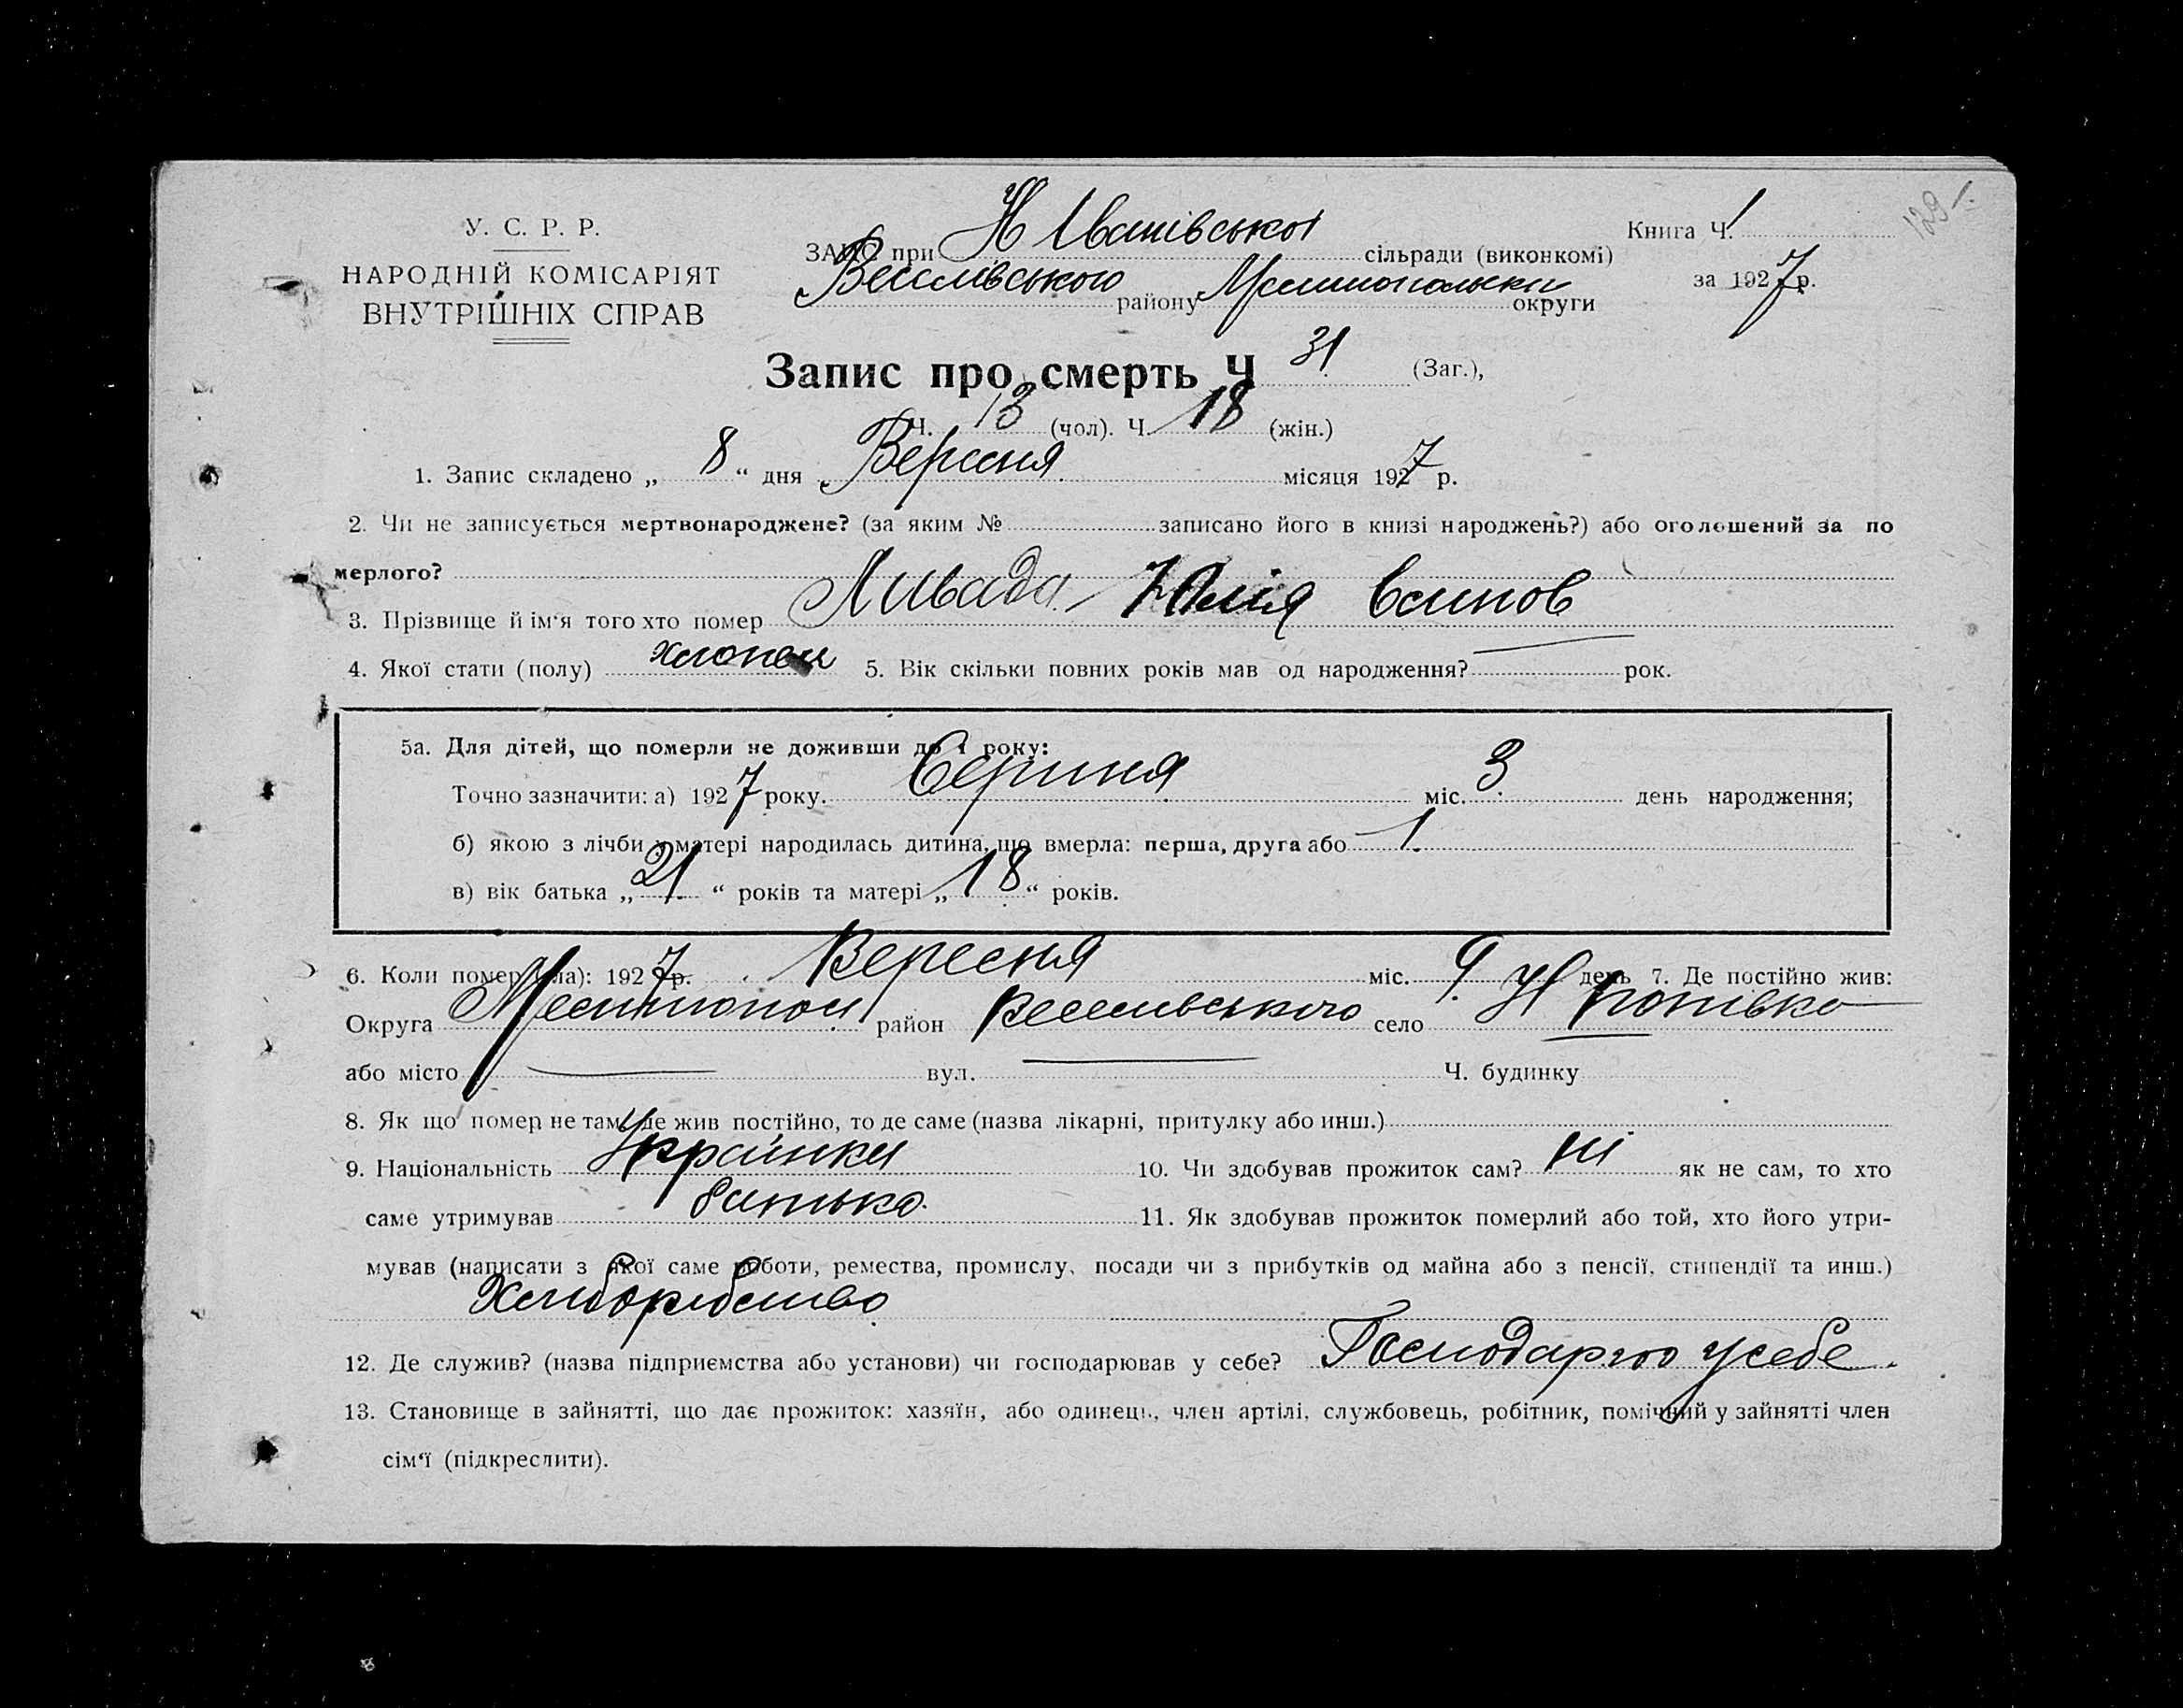 129
У. С. Р. Р.
НАРОДНІЙ КОМІСАРІЯТ
ВНУТРІШНІХ СПРАВ
ЗАГС при Н Іванівської сільради (виконкомі)
Веселівського району Мелитопольськ округи
Книга Ч. 1
за 1927 р.
Запис про смерть Ч 31 (Заг.),
Ч. 13 (чол). Ч. 18 (жін.)
1. Запис складено „ 8 “ дня Вересня місяця 1927 р.
2. Чи не записується мертвонароджене? (за яким № записано його в книзі народжень?) або оголошений за по
мерлого?
3. Прізвище й ім‘я того хто помер Ливада Юлія
4. Якої стати (полу) хлопец 5. Вік скільки повних років мав од народження? — рок.
5а. Для дітей, що померли не доживши до 1 року:
Точно зазначити: а) 1927 року. Серпня міс. 3 день народження;
б) якою з лічби у матері народилась дитина, що вмерла: перша, друга або 1.
в) вік батька „ 21 “ років та матері „ 18 “ років.
6. Коли помер(ла): 1927 р. Вересня міс. день 7. Де постійно жив:
Округа Мелитопол район Веселивського село
або місто — вул. — Ч. будинку
8. Як що помер не там, де жив постійно, то де саме (назва лікарні, притулку або инш.)
9. Національність Українка 10. Чи здобував прожиток сам? ні як не сам, то хто
саме утримував батько. 11. Як здобував прожиток померлий або той, хто його утри-
мував (написати з якої саме роботи, ремества, промислу, посади чи з прибутків од майна або з пенсії, стипендії та инш.)
Хлиборобство
12. Де служив? (назва підприємства або установи) чи господарював у себе? Господарую у себе.
13. Становище в зайнятті, що дає прожиток: хазяїн, або одинець, член артілі, службовець, робітник, помічний у зайнятті член
сім‘ї (підкреслити).